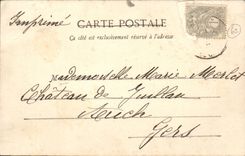 Imprimé
CARTE POSTALE
Ce côté est exclusivement réservé à l'adresse
Mademoiselle Marie Merlet
Château de
Auch
Gers